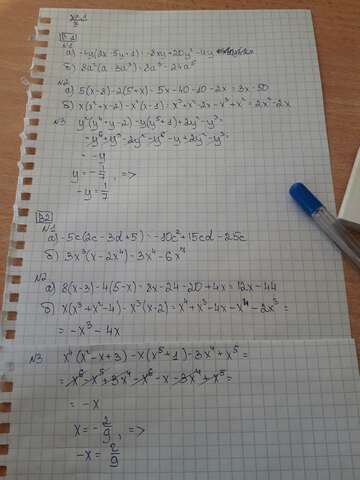 B1
N1
а) -4y(2x-5y+1) = -8xy+20y²-4y
б) 8a²(a-3a³) = 8a³-24a⁵
N2
а) 5(x-8)-2(5+x) = 5x-40-10-2x = 3x-50
б) x(x²+x-2)-x²(x-1) = x³+x²-2x-x³+x² = 2x²-2x
N3 y²(y⁴+y-2)-y(y⁵+1)+2y²-y³=
=y⁶+y³-2y²-y⁶-y+2y²-y³=
= -y
y=-1/7, =>
-y=1/7
B2
N1
а) -5c(2c-3d+5) = -10c²+15cd-25c
б) 3x³(x-2x⁴) = 3x⁴-6x⁷
N2
а) 8(x-3)-4(5-x) = 8x-24-20+4x = 12x-44
б) x(x³+x²-4)-x³(x+2) = x⁴+x³-4x-x⁴-2x³=
= -x³-4x
N3 x⁴(x²-x+3)-x(x⁵+1)-3x⁴+x⁵=
= x⁶-x⁵+3x⁴-x⁶-x-3x⁴+x⁵=
= -x
x=-2/9, =>
-x=2/9